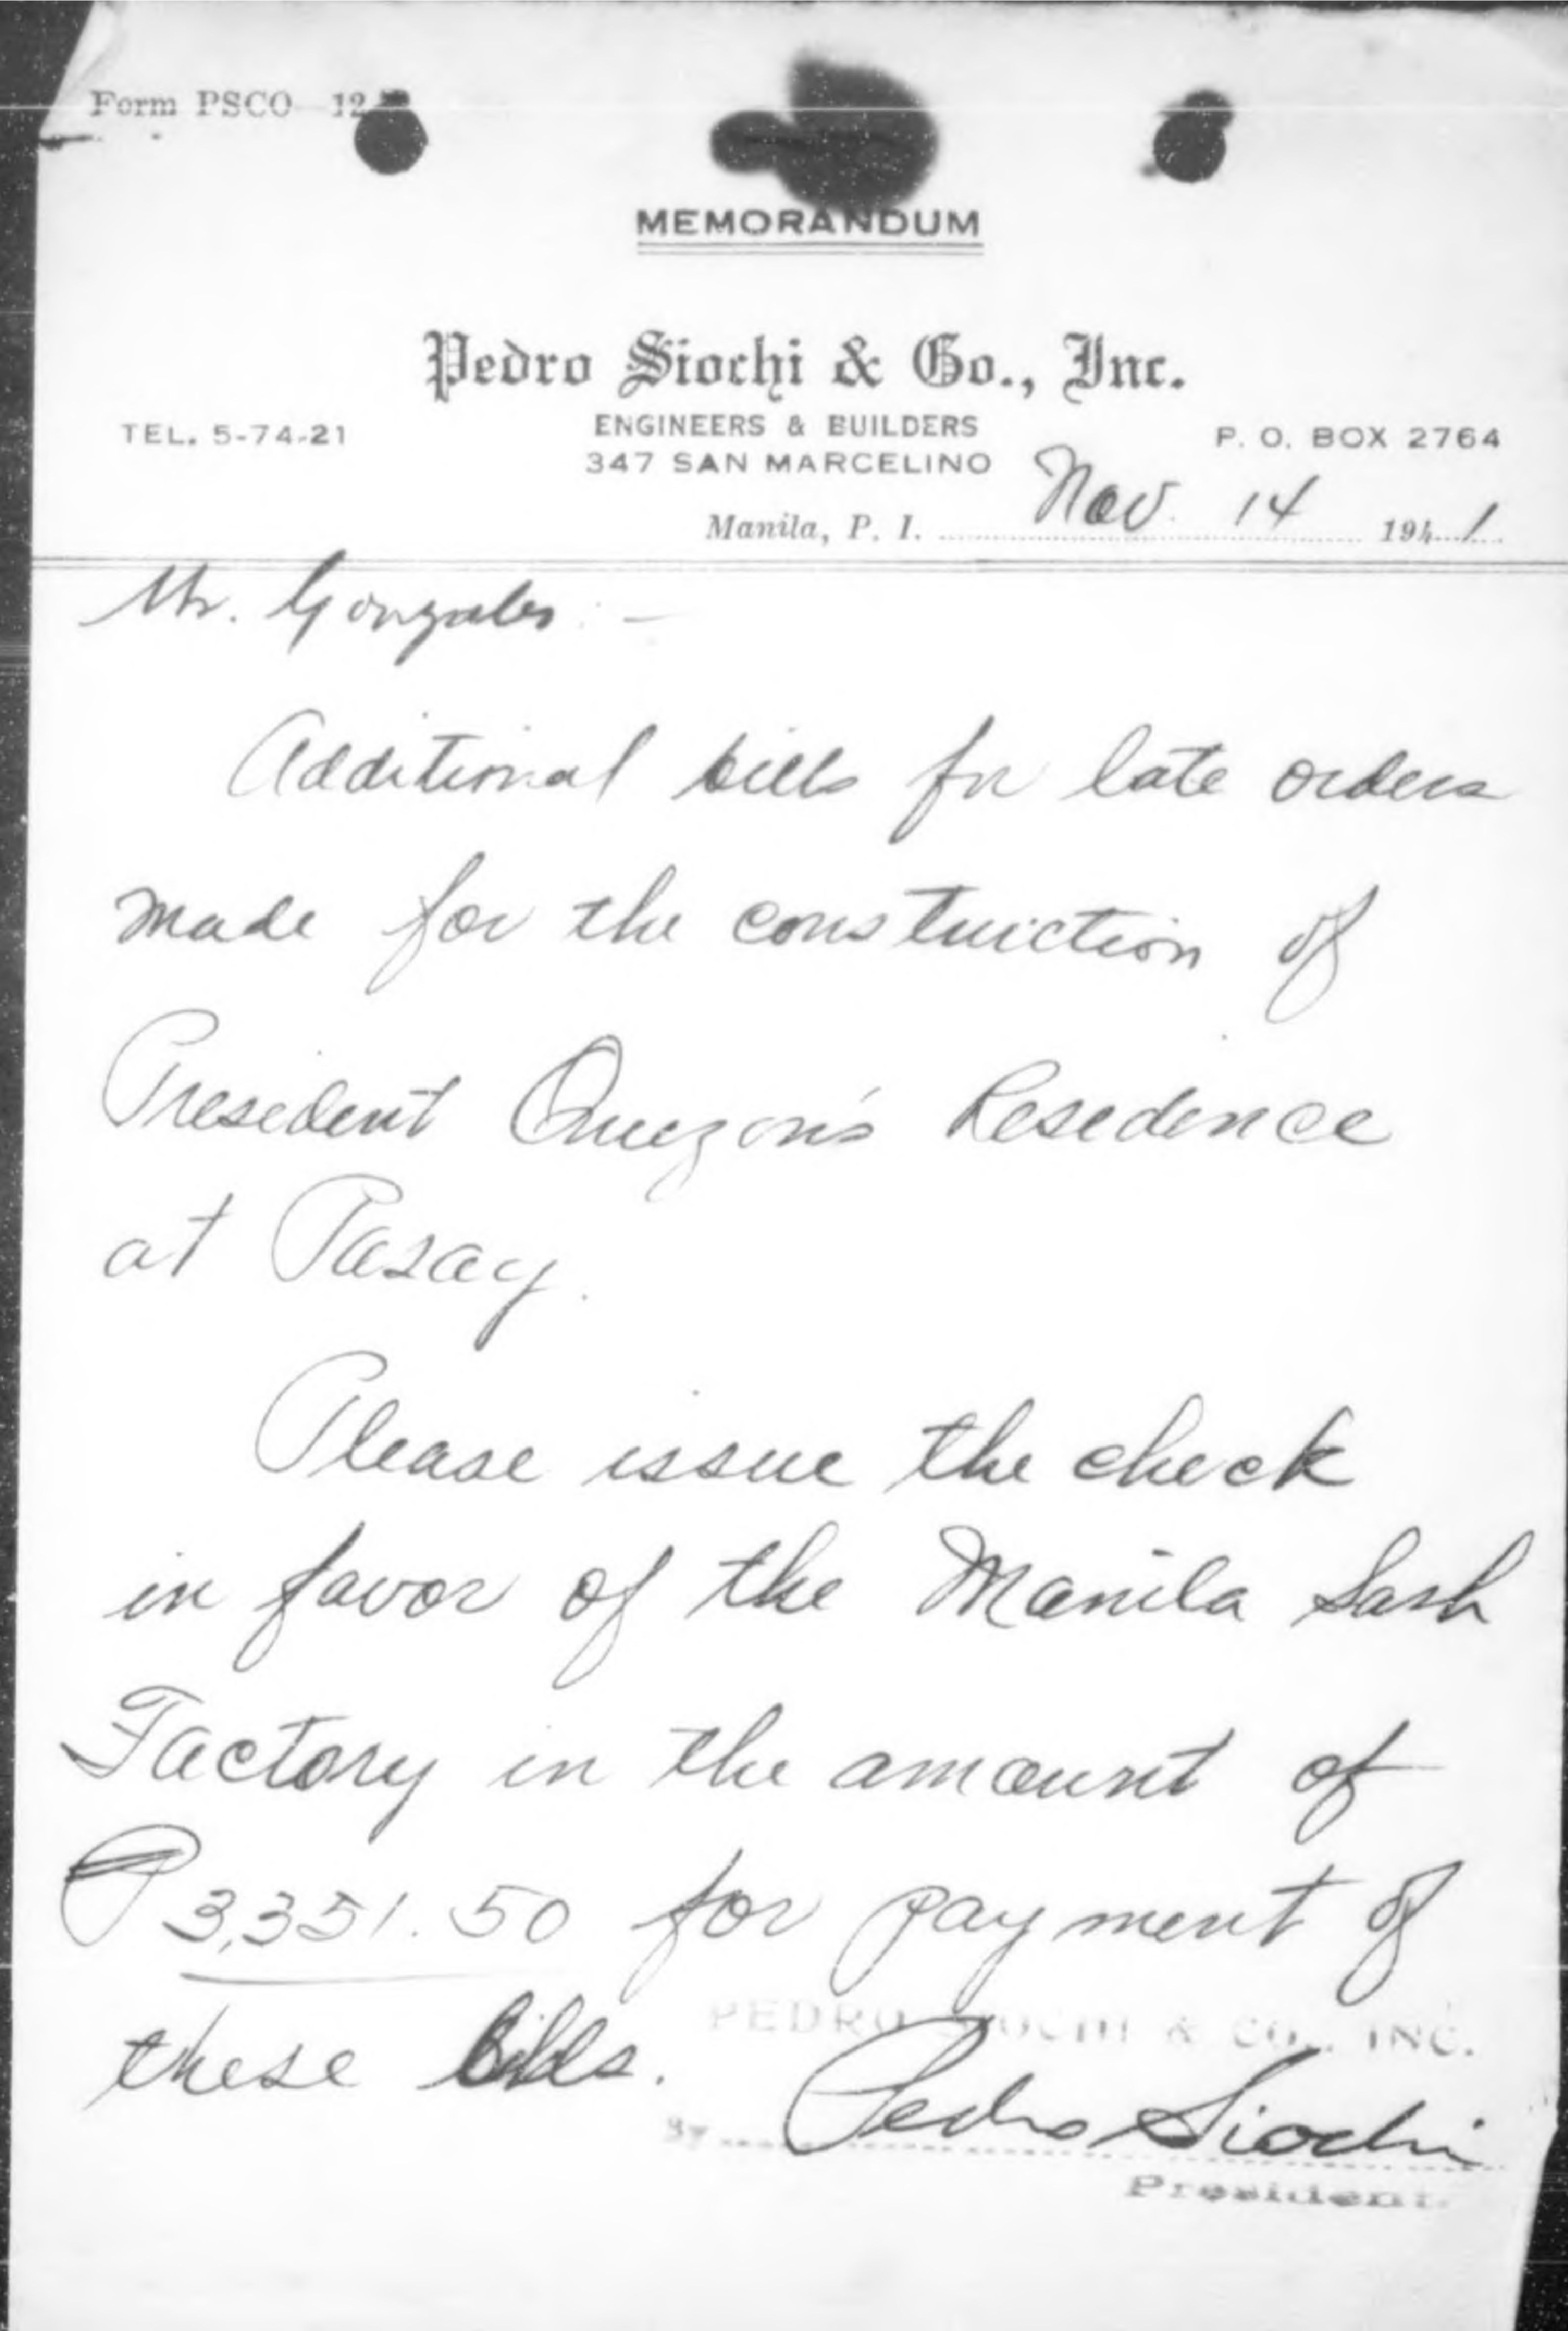 Form PSCO 12
MEMORANDUM
Pedro Siochi & Co., Inc.
ENGINEERS & BUILDERS
TEL. 5-74-21
P. O. BOX 2764
347 SAN MARCELINO
Manila, P. I. Nov. 14 1941
Mr. Gonzales: -
Additional bills for late orders
made for the construction of
President Quezon's Residence
at Pasay.
Please issue the check
in favor of the Manila Sash
Factory in the amount of
₱3,351.50 for payment of
these bills.
PEDRO SIOCHI & CO., INC.
By Pedro Siochi
President.